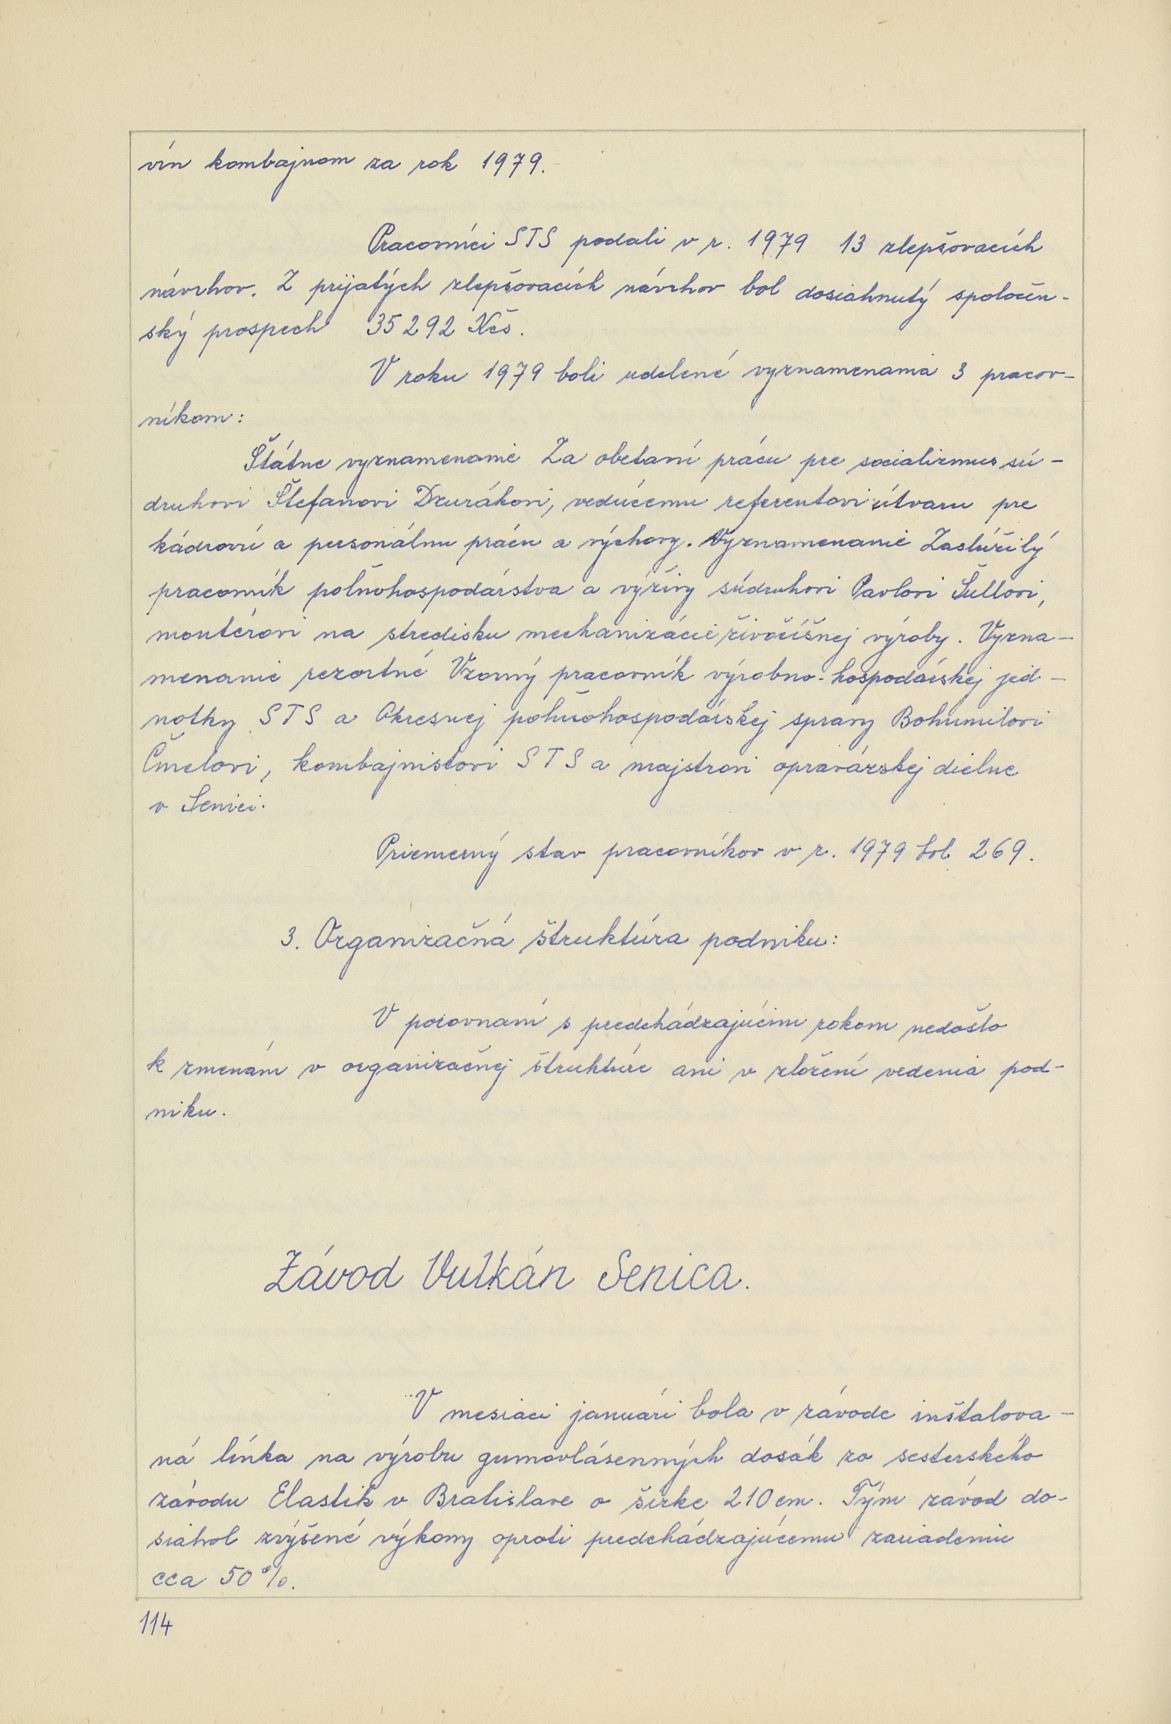 vín kombajnom za rok 1979.
Pracovníci STS podali v r. 1979 13 zlepšovacích
návrhov. Z prijatých zlepšovacích návrhov bol dosiahnutý spoločen-
ský prospech 35 292 Kčs.
V roku 1979 boli udelené vyznamenania 3 pracov-
níkom:
Štátne vyznamenanie Za obetavú prácu pre socializmus sú-
druhovi Štefanovi Dzurákovi, vedúcemu referentovi útvaru pre
kádrovú a personálnu prácu a výchovy. Vyznamenanie Zaslúžilý
pracovník poľnohospodárstva a výživy súdruhovi Pavlovi Šullovi,
montérovi na stredisku mechanizácie živočíšnej výroby. Vyzna-
menanie rezortné Vzorný pracovník výrobno-hospodárskej jed-
notky STS a Okresnej poľnohospodárskej správy Bohumilovi
Čmelovi, kombajnistovi STS a majstrovi opravárskej dielne
v Senici.
Priemerný stav pracovníkov v r. 1979 bol 269.
3. Organizačná štruktúra podniku:
V porovnaní s predchádzajúcim rokom nedošlo
k zmenám v organizačnej štruktúre ani v zložení vedenia pod-
niku.
Závod Vulkán Senica.
V mesiaci januári bola v závode inštalova-
ná línka na výrobu gumovlásenných dosák zo sesterského
závodu Elastik v Bratislave o šírke 210 cm. Tým závod do-
siahol zvýšené výkony oproti predchádzajúcemu zariadeniu
cca 50 %.
114